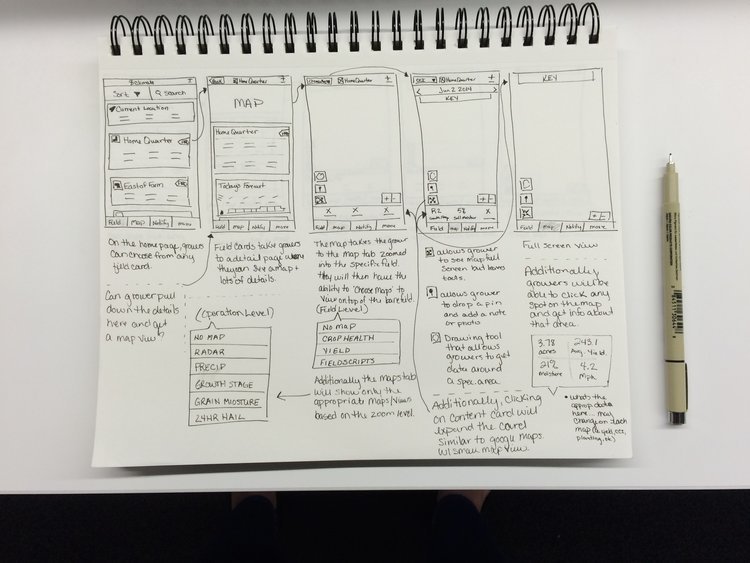 Sort ▼
Search
Current Location
Home Quarter
East of Farm
Field
Map
Notify
more
Back
HomeQuarter
MAP
Home Quarter
Today's Forecast
Field
Map
Notify
more
HomeQuarter
+ -
X
X
X
Field
Map
Notify
more
HomeQuarter
< Jun 2 2014 >
KEY
+ -
R2
58
X
Field
Map
Notify
more
KEY
+ -
Field
Map
Notify
more
On the homepage, growers
can choose from any
field card.
Can grower pull
down the details
here and get
a map view?
Field cards take growers
to a detail page where
they can see a map +
lots of details.
(Operation Level)
NO MAP
RADAR
PRECIP
GROWTH STAGE
GRAIN MOISTURE
24HR HAIL
The map takes the grower
to the map tab zoomed
into the specific field.
they will then have the
ability to "choose maps" to
view on top of the base field.
(Field Level)
NO MAP
CROP HEALTH
YIELD
FIELDSCRIPTS
Additionally the maps tab
will show only the
appropriate maps/views
based on the zoom level.
allows grower
to see map full
screen but leaves
tools.
allows grower
to drop a pin
and add a note
or photo
Drawing tool
that allows
growers to get
data around
a spec. area
Additionally, clicking
on content card will
expand the card
similar to google maps
w/ small map view.
Full Screen view
Additionally
growers will be
able to click any
spot on the map
and get info about
that area.
3.78
acres
243.1
Avg. Yield
21%
moisture
4.2
mph
• what's the
approp. data
here... may
change on each
map
planting, etc)